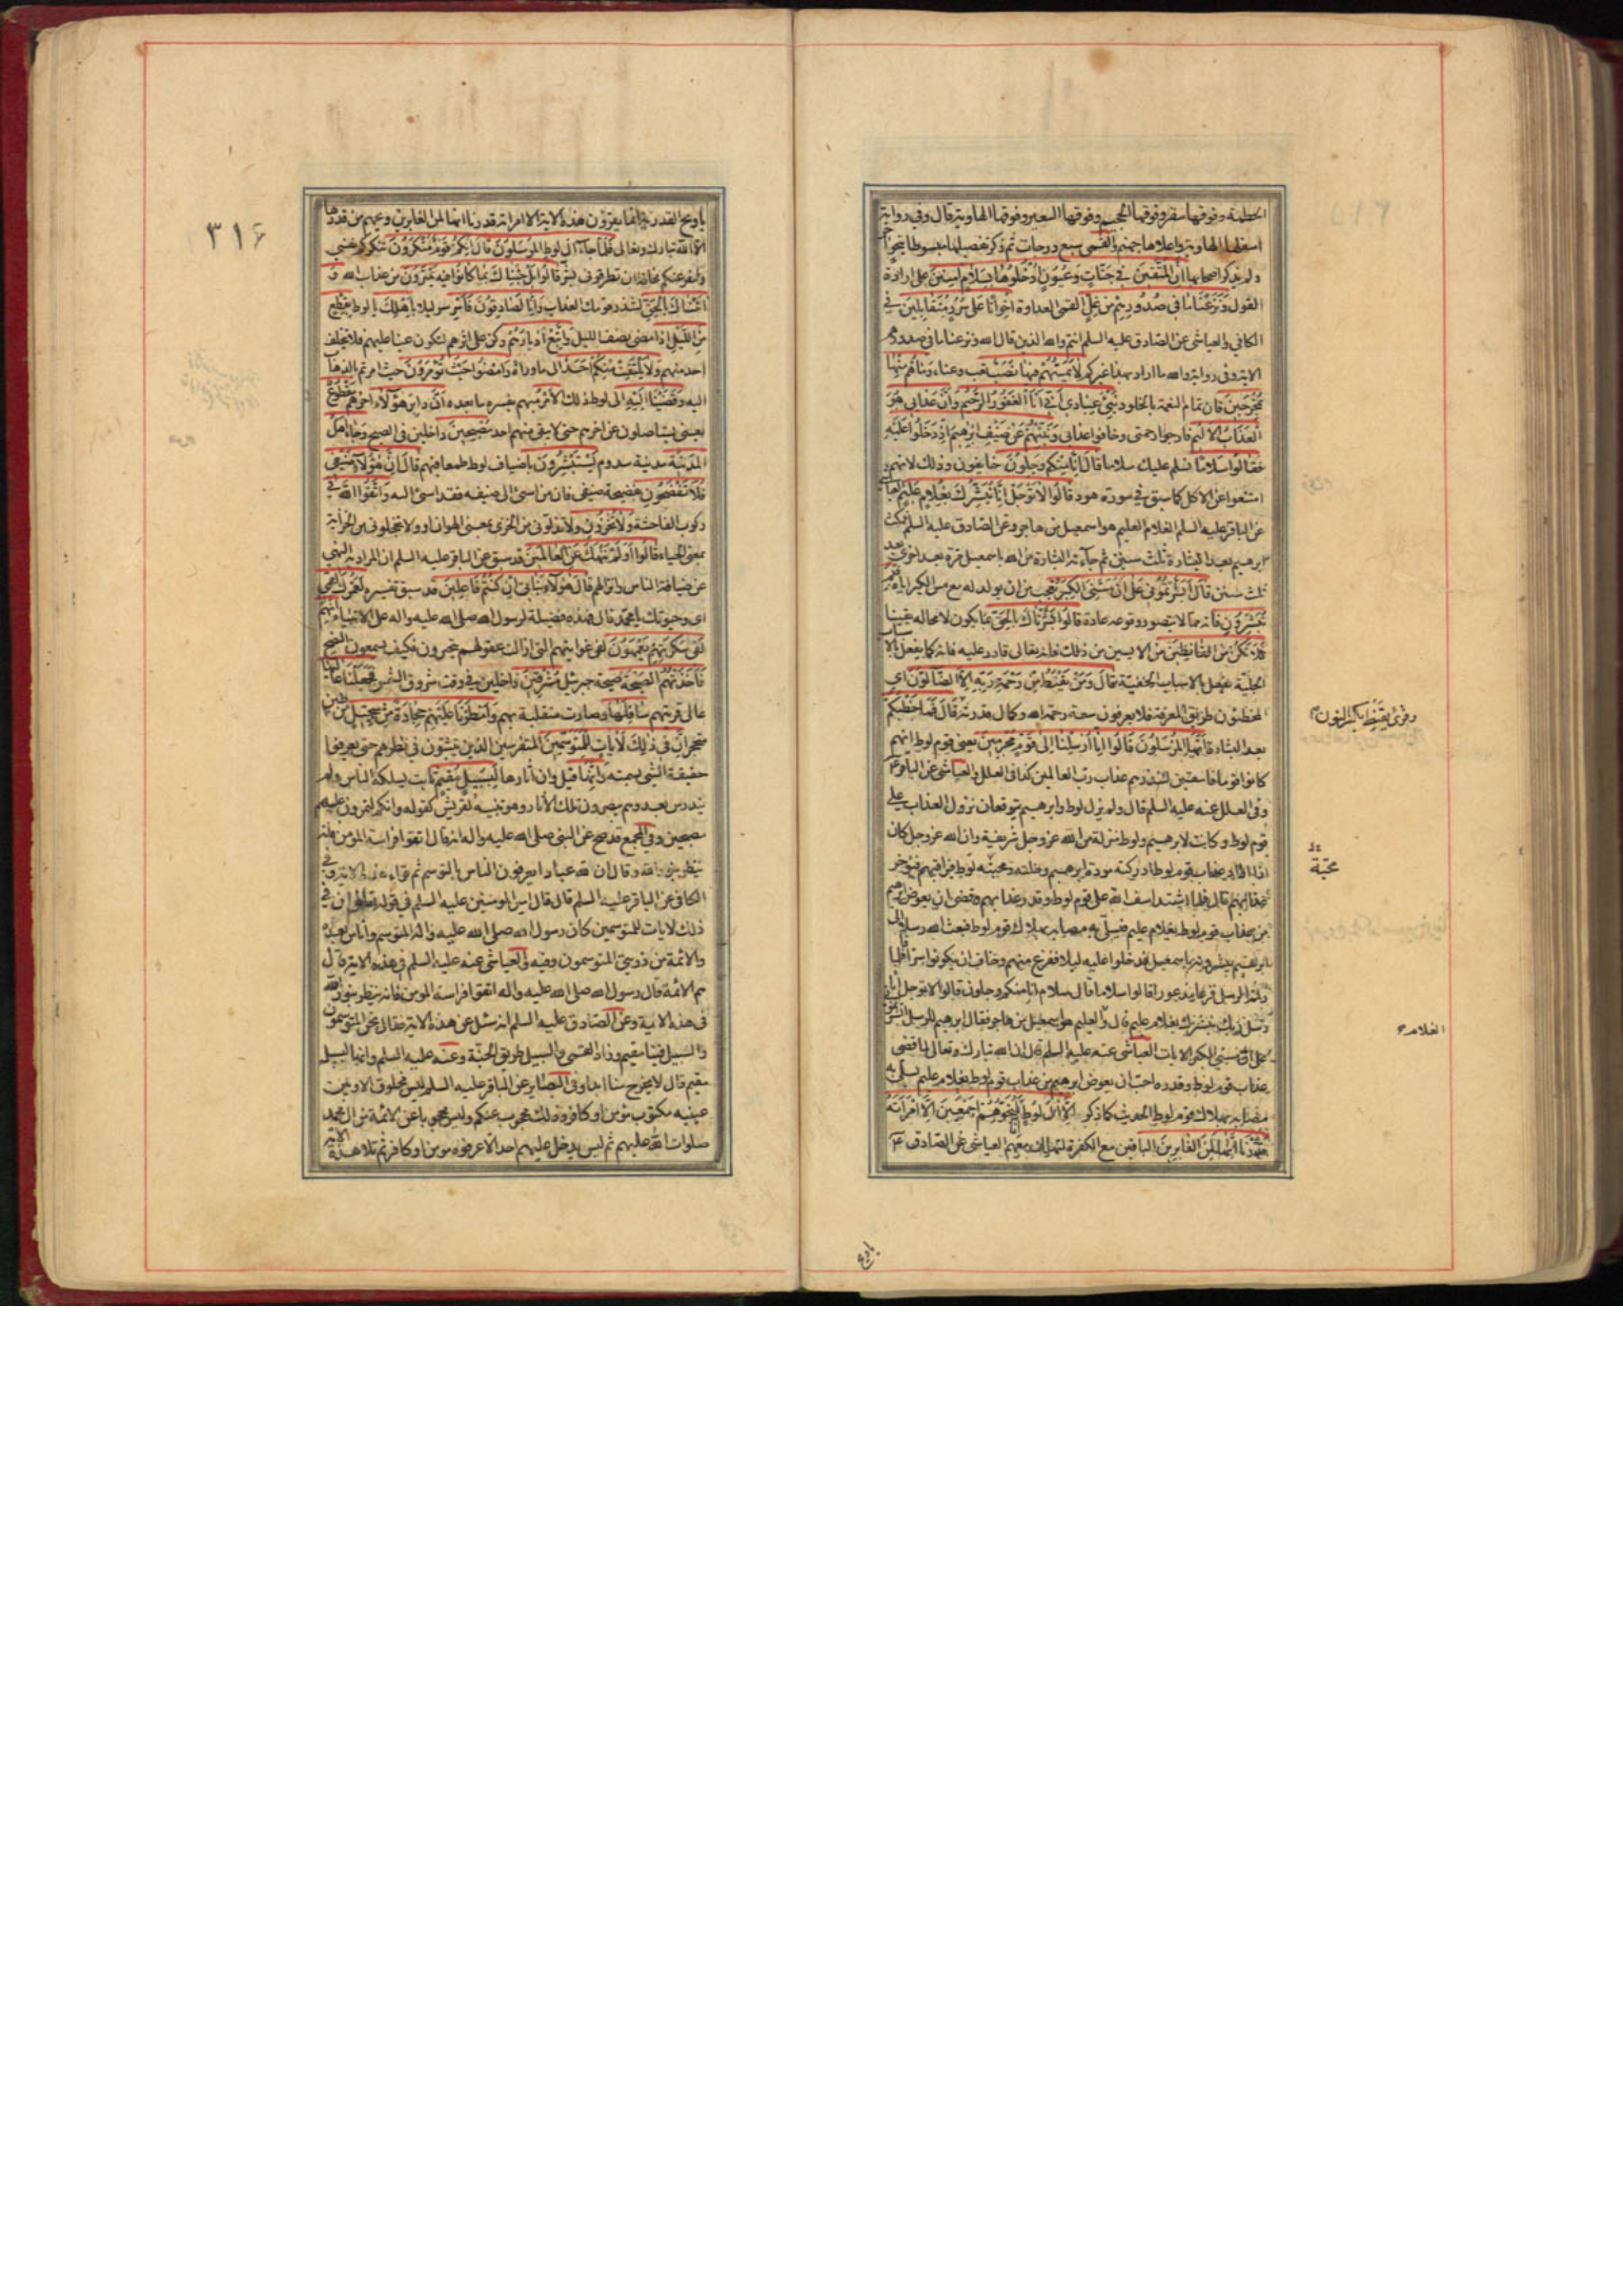 الحطمة وفوقها سقر وفوقها الجحيم وفوقها السعير وفوقها الهاوية قال وفي رواية
اسفلها الهاوية واعلاها جهنم والقمي سبع درجات ثم ذكر تفصيلها مبسوطا
ولم يذكر اصحابها ان المتقين في جنات وعيون ادخلوها بسلام امنين على ارادة
القول ونزعنا ما في صدورهم من غل القمي العداوة اخوانا على سرر متقابلين في
الكافي والعياشي عن الصادق عليه السلم انتم والله الذين قال الله ونزعنا ما في صدورهم
الاية وفي رواية والله ما اراد بهذا غيركم لا يمسهم فيها نصب تعب وعناء وما هم منها
بمخرجين فان تمام النعمة بالخلود نبئ عبادي اني انا الغفور الرحيم وان عذابي هو
العذاب الاليم فارجوا رحمتي وخافوا عذابي ونبئهم عن ضيف ابرهيم اذ دخلوا عليه
فقالوا سلاما نسلم عليك سلاما قال انا منكم وجلون خايفون وذلك لانهم
امتنعوا عن الاكل كما سبق في سورة هود قالوا لا توجل انا نبشرك بغلام عليم العياشي
عن الباقر عليه السلم الغلام العليم هو اسمعيل من هاجر وعن الصادق عليه السلم فمكث
ابرهيم بعد البشارة ثلث سنين ثم جاءته البشارة من الله باسمعيل مرة بعد اخرى بعد
ثلث سنين قال ابشرتموني على ان مسني الكبر تعجب من ان يولد له مع مس الكبر اياه فبم
تبشرون فانه مما لا يتصور وقوعه عادة قالوا بشرناك بالحق بما يكون لا محالة يقينا
فلا تكن من القانطين من الايسين من ذلك فانه تعالى قادر عليه فانه كما يفعل بالاسباب
الجلية يفعل بالاسباب الخفية قال ومن يقنط من رحمة ربه الا الضالون اي
المخطئون طريق المعرفة فلا يعرفون سعة رحمة الله وكمال قدرته قال فما خطبكم
بعد البشارة ايها المرسلون قالوا انا ارسلنا الى قوم مجرمين يعني قوم لوط انهم
كانوا قوما فاسقين لننذرهم عذاب رب العالمين كذا في العلل والعياشي عن الباقر ع
وفي العلل عنه عليه السلم قال ولم يزل لوط وابرهيم يتوقعان نزول العذاب على
قوم لوط وكانت لابرهيم ولوط منزلة من الله عز وجل شريفة وان الله عز وجل كان
اذا اراد عذاب قوم لوط ادركته مودة ابرهيم وخلته ومحبته لوط فيراقبهم فيؤخر
عذابهم قال فلما اشتد اسف الله على قوم لوط وقدر عذابهم وقضى ان يعوض ابرهيم
من عذاب قوم لوط بغلام عليم فيسلي به مصابه بهلاك قوم لوط فبعث الله رسلا الى
ابرهيم يبشرونه باسمعيل فدخلوا عليه ليلا ففزع منهم وخاف ان يكونوا سراقا فلما
راته الرسل فزعا مذعورا قالوا سلاما قال سلام انا منكم وجلون قالوا لا توجل انا
رسل ربك نبشرك بغلام عليم قال والعليم هو اسمعيل من هاجر فقال ابرهيم للرسل ابشرتموني
على ان مسني الكبر الايات العياشي عنه عليه السلم قال ان الله تبارك وتعالى لما قضى
عذاب قوم لوط وقدره احب ان يعوض ابرهيم من عذاب قوم لوط بغلام عليم يسلي به
مصابه بهلاك قوم لوط الحديث كما ذكر الا ال لوط انا لمنجوهم اجمعين الا امراته
قدرنا انها لمن الغابرين الباقين مع الكفرة لتهلك معهم العياشي عن الصادق ع
وقرئ يقنط بكسر النون
محبة
الغلام
يا ويح
٣١۶
يا ويح القدرية انما يقرؤن هذه الاية الا امراته قدرنا انها لمن الغابرين ويحهم من قدرها
الا الله تبارك وتعالى فلما جاء ال لوط المرسلون قال انكم قوم منكرون تنكركم نفسي
وتنفر عنكم مخافة ان تطرقوني بشر قالوا بل جئناك بما كانوا فيه يمترون من عذاب الله و
اتيناك بالحق لتنذر قومك العذاب وانا لصادقون فاسر سر ليلا باهلك يا لوط بقطع
من الليل اذا مضى نصف الليل واتبع ادبارهم وكن على اثرهم لتكون عينا عليهم فلا يتخلف
احد منهم ولا يلتفت منكم احد الى ما وراءه وامضوا حيث تؤمرون حيث امرتم بالذهاب
اليه وقضينا اليه الى لوط ذلك الامر مبهم يفسره ما بعده ان دابر هؤلاء اخرهم مقطوع
يعني يستاصلون عن اخرهم حتى لا يبقى منهم احد مصبحين داخلين في الصبح وجاء اهل
المدينة مدينة سدوم يستبشرون باضياف لوط طمعا فيهم قال ان هؤلاء ضيفي
فلا تفضحون بفضيحة ضيفي فان من اسئ الى ضيفه فقد اسئ اليه واتقوا الله في
ركوب الفاحشة ولا تخزون ولا تذلوني من الخزي بمعنى الهوان او ولا تخجلوني من الخزاية
بمعنى الحياء قالوا اولم ننهك عن العالمين قد سبق عن الباقر عليه السلم ان المراد به النهي
عن ضيافة الناس وانزالهم قال هؤلاء بناتي ان كنتم فاعلين قد سبق تفسيره لعمرك القمي
اي وحيوتك يا محمد قال فهذه فضيلة لرسول الله صلى الله عليه واله على الانبياء انهم
لفي سكرتهم يعمهون لفي غوايتهم التي ازالت عقولهم يتحيرون فكيف يسمعون النصح
فاخذتهم الصيحة صيحة جبرئيل مشرقين داخلين في وقت شروق الشمس فجعلنا عاليها
عالي قريتهم سافلها وصارت منقلبة بهم وامطرنا عليهم حجارة من سجيل من طين
متحجر ان في ذلك لايات للمتوسمين المتفرسين الذين يتثبتون في نظرهم حتى يعرفوا
حقيقة الشئ بسمته وانها قيل وان اثارها لبسبيل مقيم ثابت يسلكه الناس ولم
يندرس بعد وهم يبصرون تلك الاثار وهو تنبيه لقريش كقوله وانكم لتمرون عليهم
مصبحين وفي المجمع قد صح عن النبي صلى الله عليه واله انه قال اتقوا فراسة المؤمن فانه
ينظر بنور الله وقال ان لله عبادا يعرفون الناس بالتوسم ثم قراء هذه الاية وفي
الكافي عن الباقر عليه السلم قال قال امير المؤمنين عليه السلم في قوله تعالى ان في
ذلك لايات للمتوسمين كان رسول الله صلى الله عليه واله المتوسم وانا من بعده
والائمة من ذريتي المتوسمون وفيه والعياشي عنه عليه السلم في هذه الاية قال
هم الائمة قال رسول الله صلى الله عليه واله اتقوا فراسة المؤمن فانه ينظر بنور الله
في هذه الاية وعن الصادق عليه السلم انه سئل عن هذه الاية فقال نحن المتوسمون
والسبيل فينا مقيم وزاد القمي والسبيل طريق الجنة وعنه عليه السلم وانها لبسبيل
مقيم قال لا يخرج منا ابدا وفي البصاير عن الباقر عليه السلم ليس مخلوق الا وبين
عينيه مكتوب مؤمن او كافر وذلك محجوب عنكم وليس محجوبا عن الائمة من ال محمد
صلوات الله عليهم ثم ليس يدخل عليهم احد الا عرفوه مومن او كافر ثم تلا هذه الاية